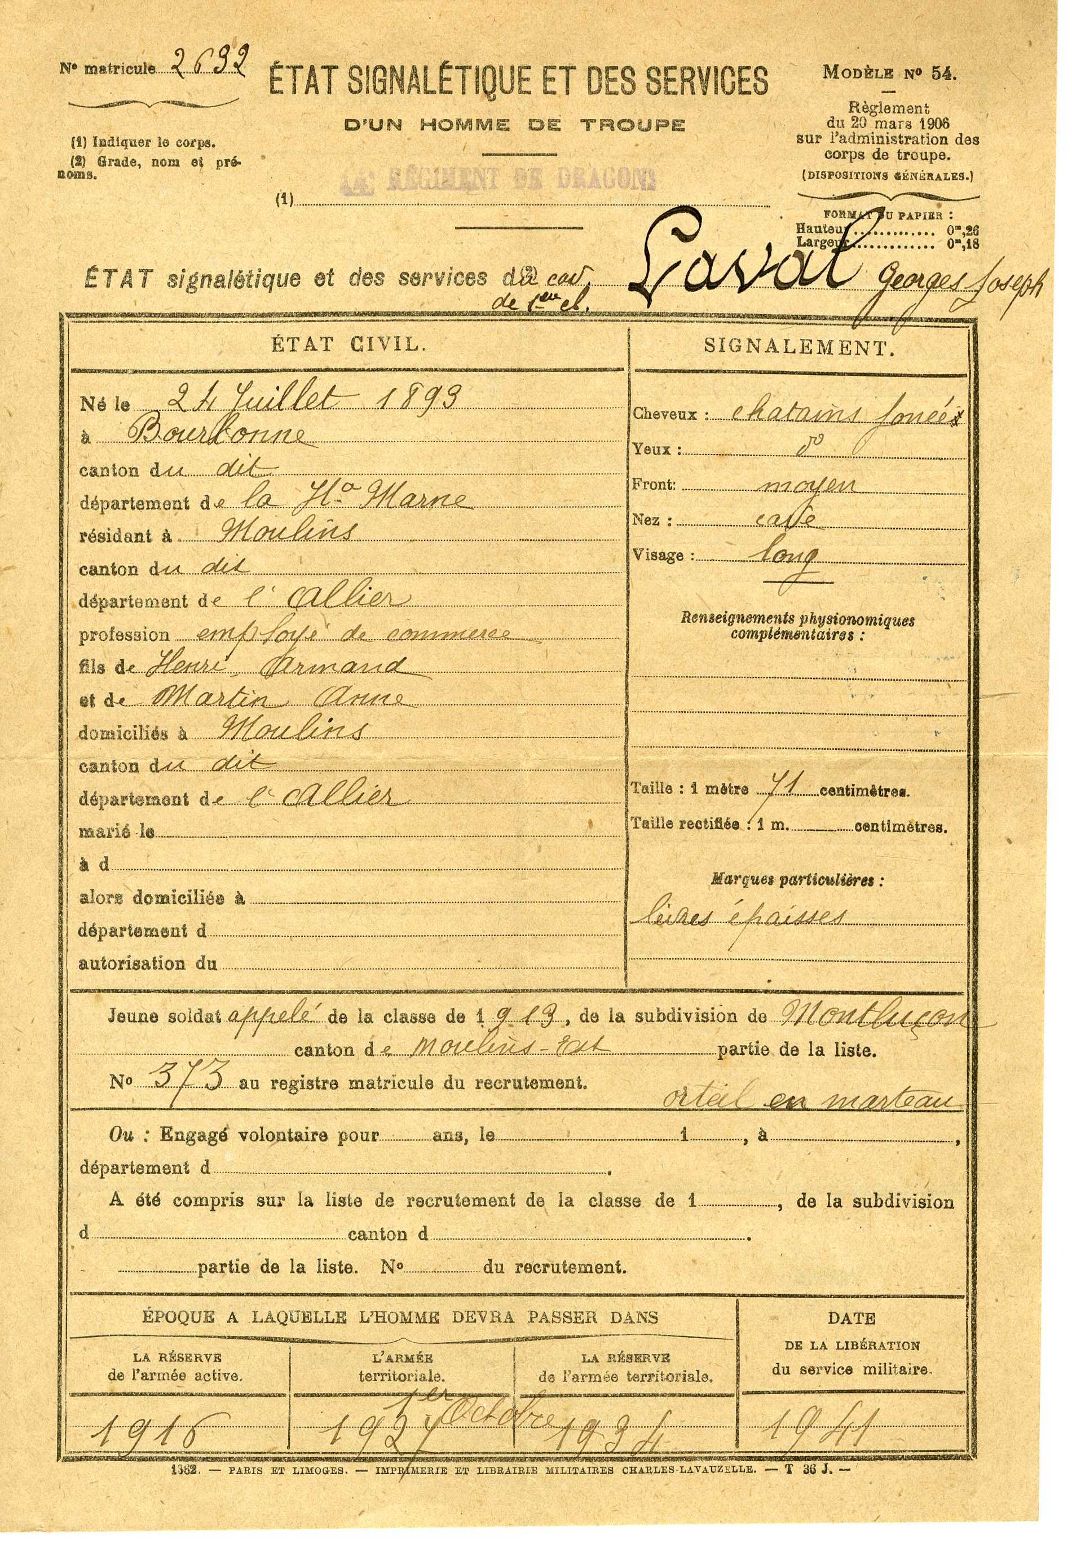 No matricule 2632
ÉTAT SIGNALÉTIQUE ET DES SERVICES
D'UN HOMME DE TROUPE
MODÈLE No 54.
Règlement
du 20 mars 1906
sur l'administration des
corps de troupe.
(DISPOSITIONS GÉNÉRALES.)
(1) Indiquer le corps.
(2) Grade, nom et pré-
noms.
RÉGIMENT DE DRAGONS
(1)
FORMAT DU PAPIER :
Hauteur 0m,26
Largeur 0m,18
ÉTAT signalétique et des services du (2) cav. Laval Georges Joseph
de 1ere cl.
ÉTAT CIVIL.
Né le 24 Juillet 1893
à Bourbonne
canton du dit
département de la Hte Marne
résidant à Moulins
canton du dit
département de l'Allier
profession employé de commerce
fils de Henri, Armand
et de Martin Anne
domiciliés à Moulins
canton du dit
département de l'Allier
marié le
à d
alors domiciliée à
département d
autorisation du
SIGNALEMENT.
Cheveux : chatains foncés
Yeux : do
Front: moyen
Nez : cave
Visage : long
Renseignements physionomiques
complémentaires :
Taille : 1 mètre 71 centimètres.
Taille rectifiée : 1 m. centimètres.
Marques particulières :
lèvres épaisses
Jeune soldat appelé de la classe de 1913, de la subdivision de Montluçon
canton de Moulins-Est partie de la liste.
No 373 au registre matricule du recrutement.
orteil en marteau
Ou : Engagé volontaire pour ans, le 1 , à ,
département d .
A été compris sur la liste de recrutement de la classe de 1 , de la subdivision
d canton d .
partie de la liste. No du recrutement.
ÉPOQUE A LAQUELLE L'HOMME DEVRA PASSER DANS
DATE
DE LA LIBÉRATION
du service militaire.
LA RÉSERVE
de l'armée active.
L'ARMÉE
territoriale.
LA RÉSERVE
de l'armée territoriale.
1er Octobre
1916 1927 1934 1941
1362. — PARIS ET LIMOGES. — IMPRIMERIE ET LIBRAIRIE MILITAIRES CHARLES-LAVAUZELLE. — T 36 J. —